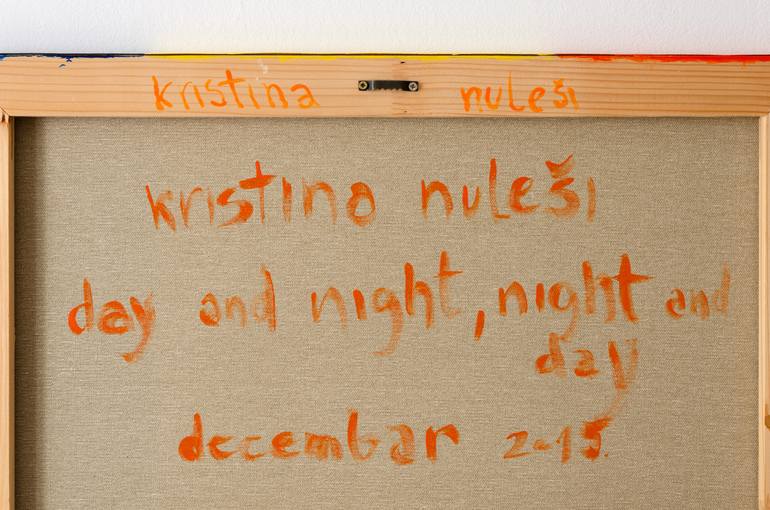 kristina nuleši
kristina nuleši
day and night, night and
day
decembar 2015.